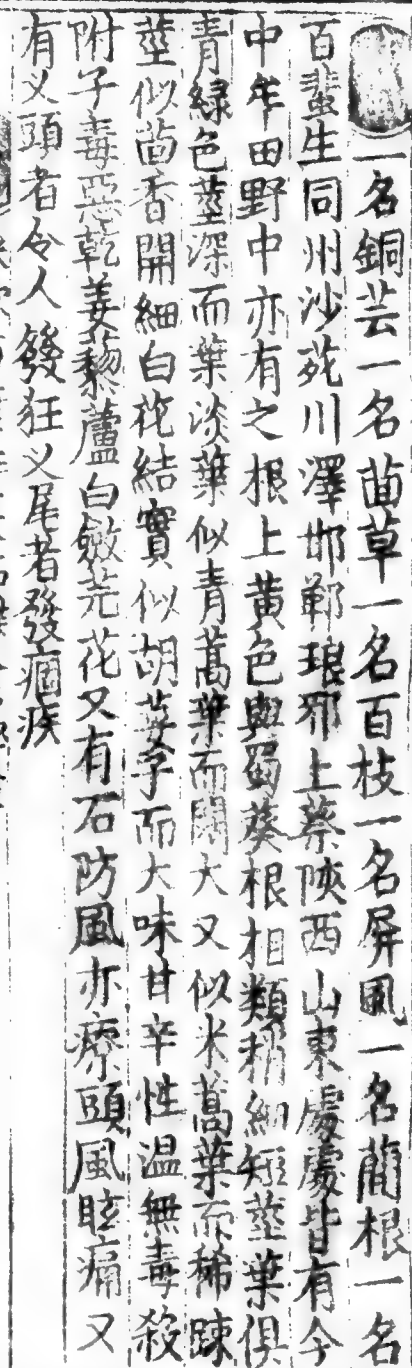 一名銅芸一名茴草一名百枝一名屏風一名蕳根一名
百蜚生同州沙苑川澤邯鄲琅邪上蔡陝西山東處處皆有今
中牟田野中亦有之根土黃色與蜀葵根相類稍細短莖葉俱
青綠色莖深而葉淡葉似青蒿葉而闊大又似米蒿葉而稀踈
莖似茴香開細白花結實似胡荽子而大味甘辛性温無毒殺
附子毒惡乾姜藜蘆白斂芫花又有石防風亦療頭風眩痛又
有乂頭者令人發狂乂尾者發痼疾